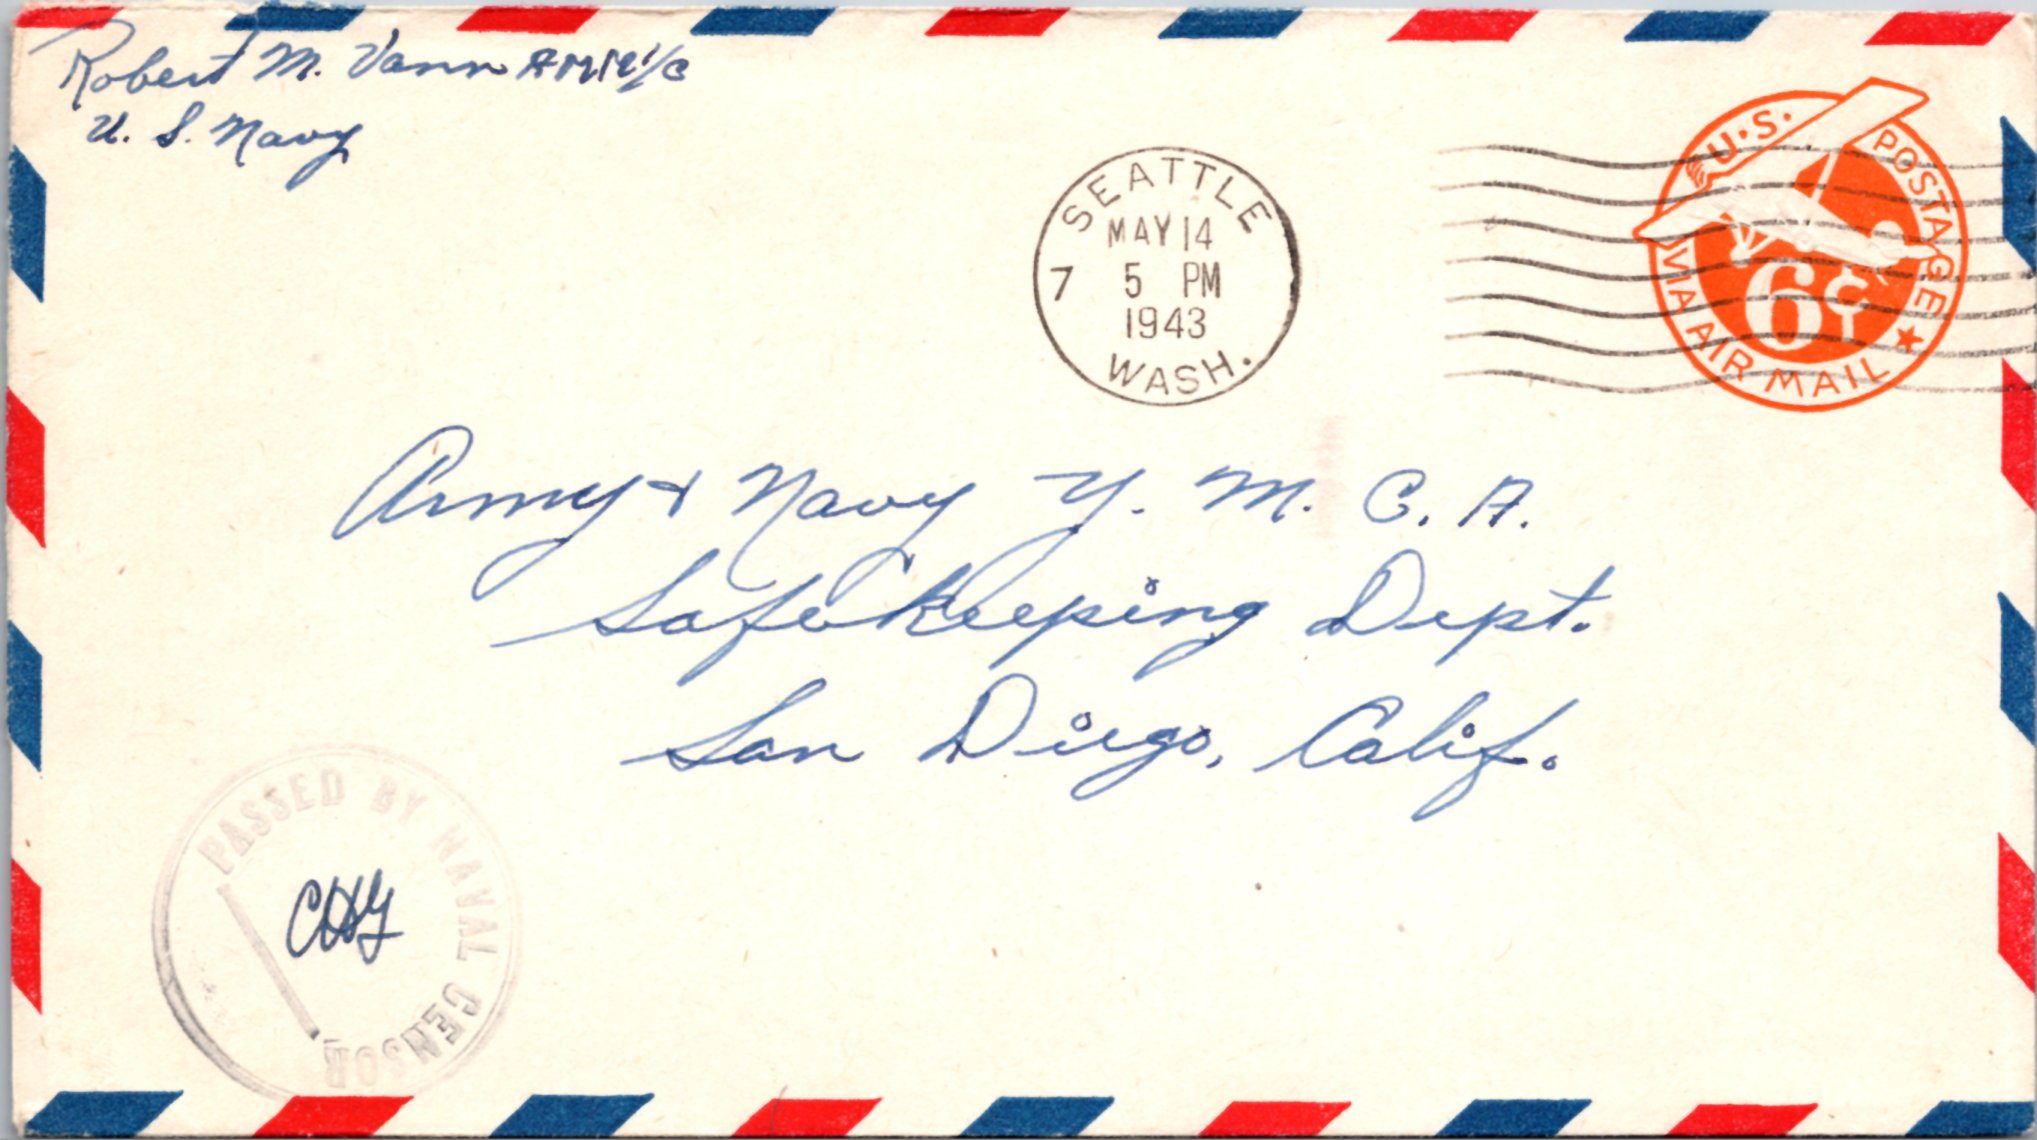 Robert M. Vann AMM1/c
U. S. Navy
SEATTLE
MAY 14
7 5 PM
1943
WASH.
U.S. POSTAGE
6¢
VIA AIR MAIL
Army & Navy Y. M. C. A.
Safekeeping Dept.
San Diego, Calif.
PASSED BY NAVAL CENSOR